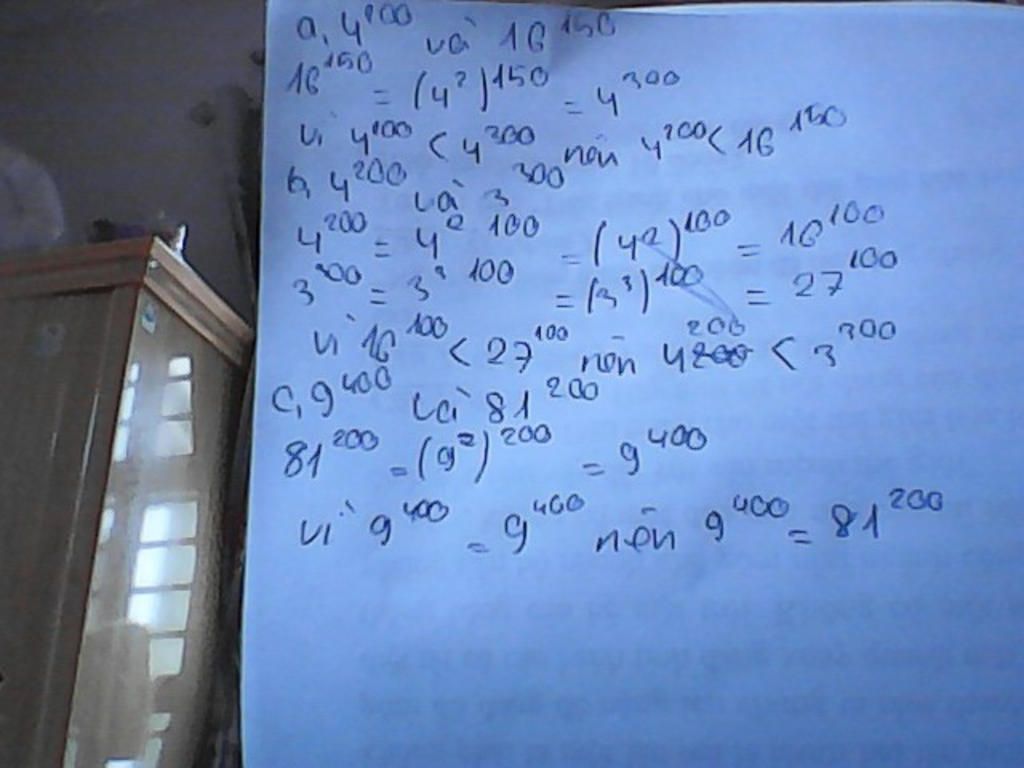 a, 4^200 và 16^150
16^150 = (4^2)^150 = 4^300
vì 4^100 < 4^300 nên 4^200 < 16^150
b, 4^200 và 3^300
4^200 = 4^2 100 = (4^2)^100 = 16^100
3^300 = 3^3 100 = (3^3)^100 = 27^100
vì 16^100 < 27^100 nên 4^200 < 3^300
c, 9^400 và 81^200
81^200 = (9^2)^200 = 9^400
vì 9^400 = 9^400 nên 9^400 = 81^200